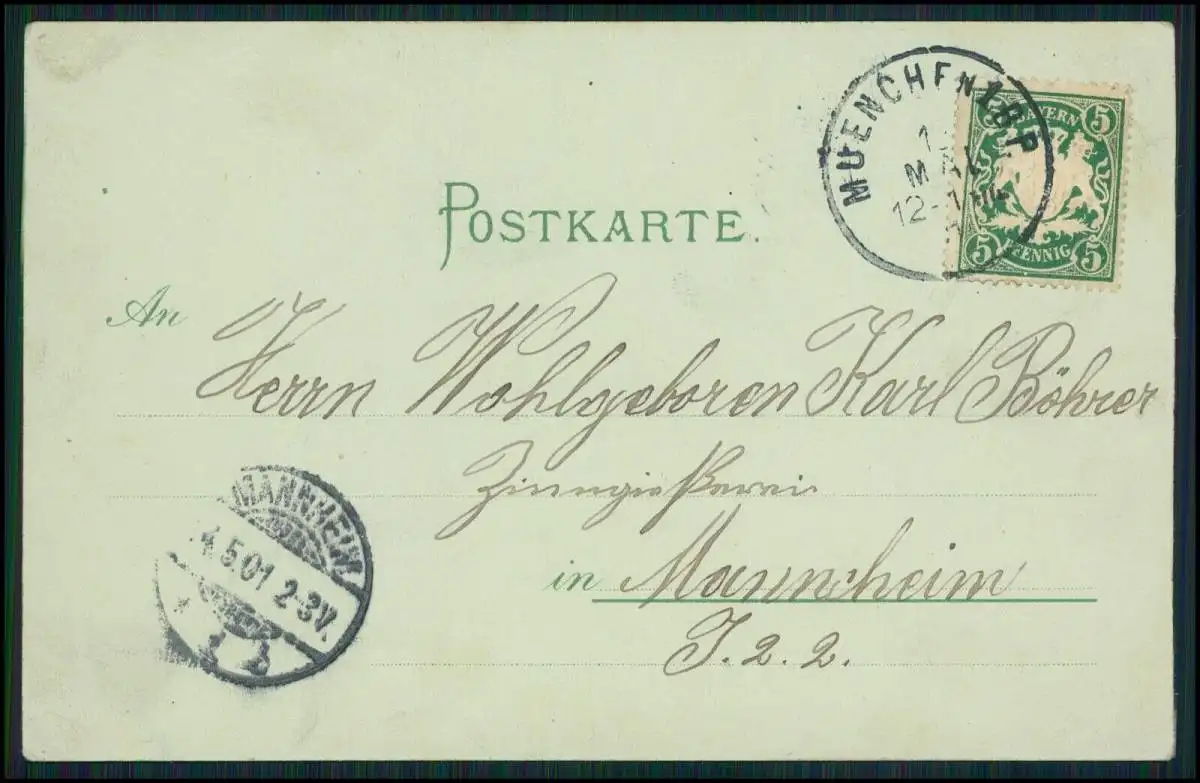 MUENCHEN 1 B.P.
MAI
12-1
5 BAYERN 5
5 PFENNIG 5
POSTKARTE.
An
Herrn Wohlgeboren Karl Böhrer
Zinngießerei
MANNHEIM
4.5.01 2-3V.
1 b
in Mannheim
J. 2. 2.